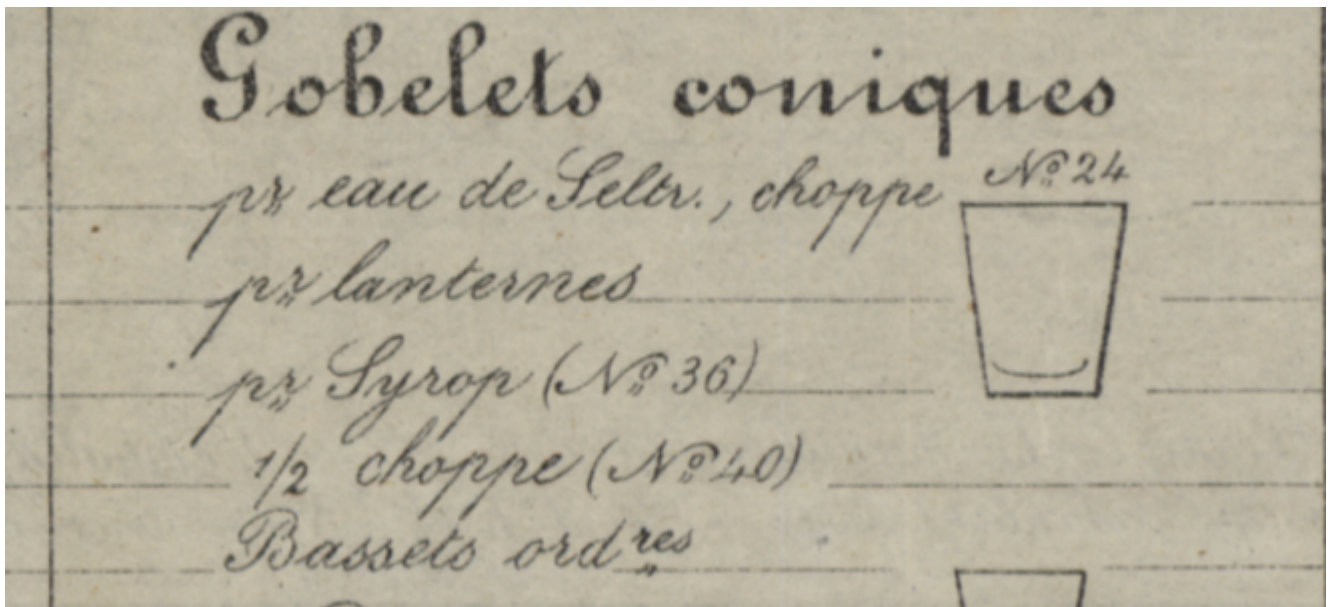 Gobelets coniques
pr eau de Seltr., choppe Nº 24
pr lanternes
pr Syrop (Nº 36)
1/2 choppe (Nº 40)
Bassets ordres